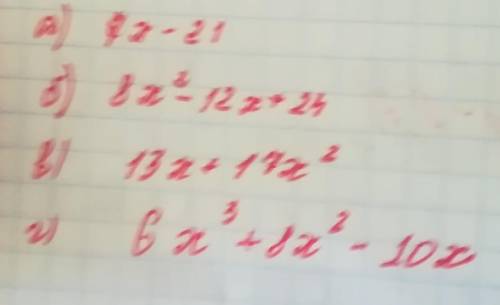 а) 7x - 21
б) 8x² - 12x + 24
в) 13x + 17x²
г) 6x³ + 8x² - 10x